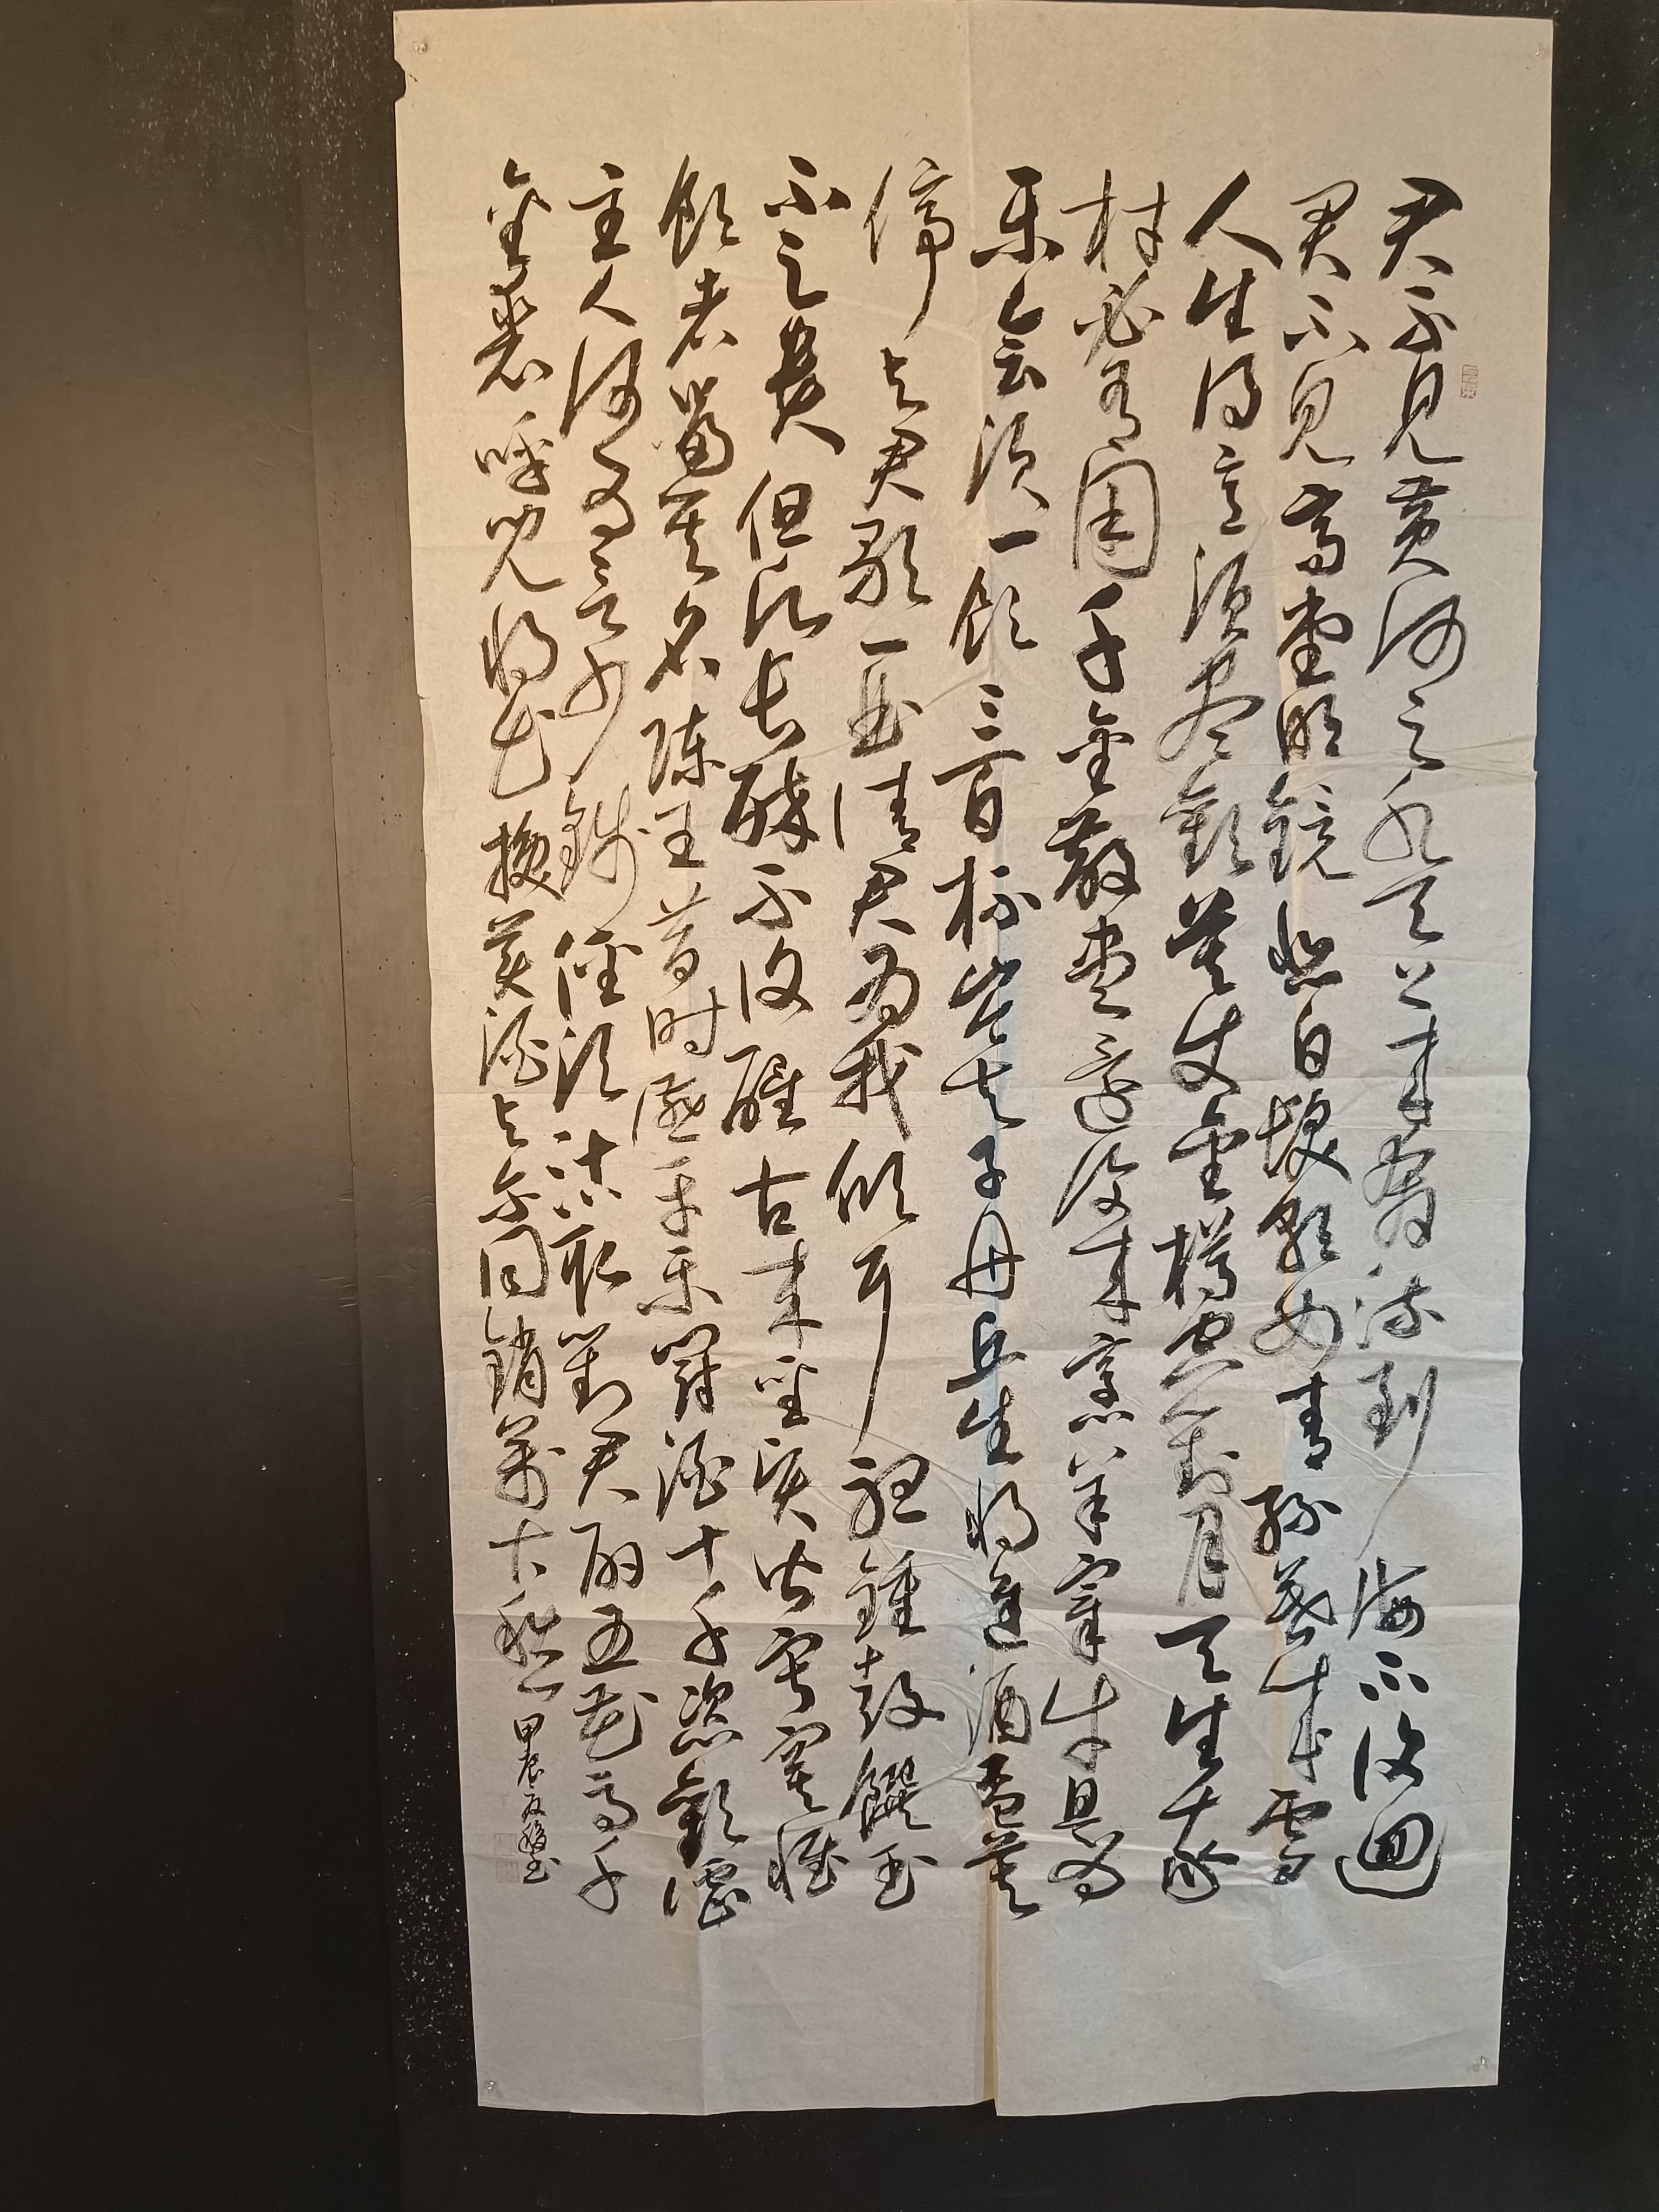 君不见黄河之水天上来奔流到海不復迴
君不见高堂明镜悲白髮朝如青丝暮成雪
人生得意须尽歡莫使金樽空對月天生我
材必有用千金散盡還復来烹羊宰牛且為
乐会须一饮三百杯岑夫子丹丘生将進酒杯莫
停与君歌一曲请君为我倾耳聽鍾鼓饌玉
不足貴但願长醉不復醒古来聖贤皆寂寞惟
饮者留其名陈王昔时宴平乐斗酒十千恣歡謔
主人何为言少錢徑须沽取對君酌五花马千
金裘呼儿将出换美酒与尔同銷萬古愁
甲辰 書